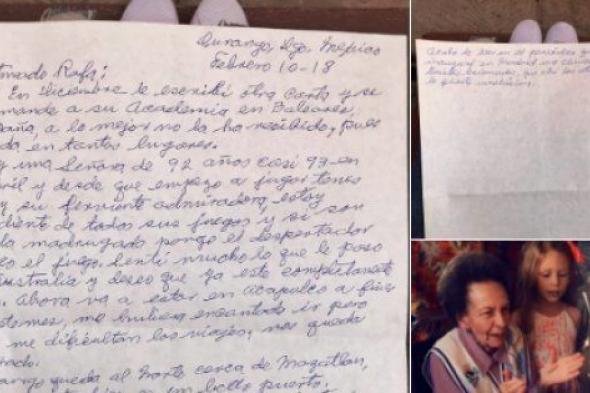 Durango, Dgo, México
Febrero 10-18
mado Rafa:
En diciembre le escribí otra carta y se
mande a su Academia en Baleares,
aña, a lo mejor no la ha recibido, pues
da en tantos lugares.
y una Señora de 92 años casi 93 en
ril y desde que empezo a jugar tenis
y su ferviente admiradora, estoy
diente de todos sus juegos y si son
la madrugada pongo el despertador
eo el juego. Senti mucho lo que le paso
Australia y deseo que ya este completamente
Ahora va a estar en Acapulco a fines
mes, me hubiera encantado ir pero
me dificultan los viajes, nos queda
rado.
ango queda al Norte cerca de Mazatlan,
bello puerto.
Acabo de leer en el periódico que
inauguró en